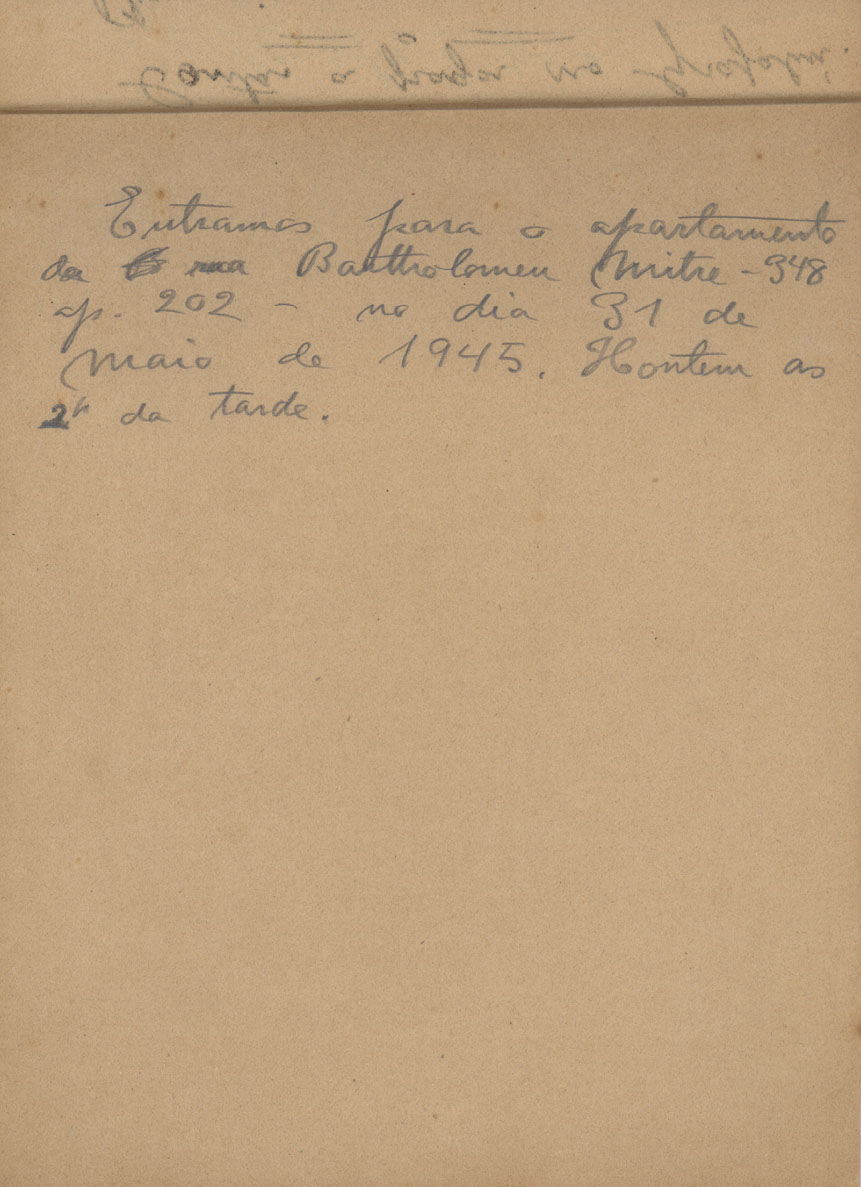 Entramos para o apartamento
da rua Bartholomeu Mitre - 948
ap. 202 - no dia 31 de
Maio de 1945. Hontem as
2h da tarde.